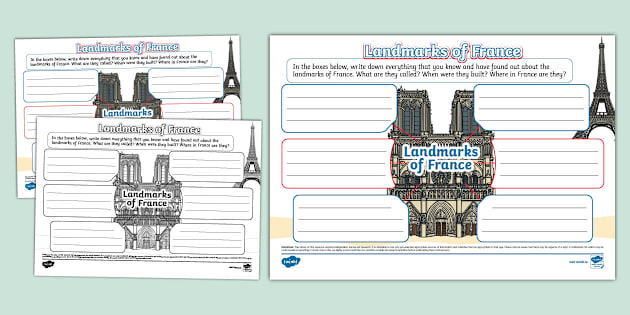 Landmarks of France
In the boxes below, write down everything that you know and have found out about the
landmarks of France. What are they called? When were they built? Where in France are they?
Landmarks
Landmarks of France
In the boxes below, write down everything that you know and have found out about the
landmarks of France. What are they called? When were they built? Where in France are they?
Landmarks
of France
twinkl
Landmarks of France
In the boxes below, write down everything that you know and have found out about the
landmarks of France. What are they called? When were they built? Where in France are they?
Landmarks
of France
twinkl